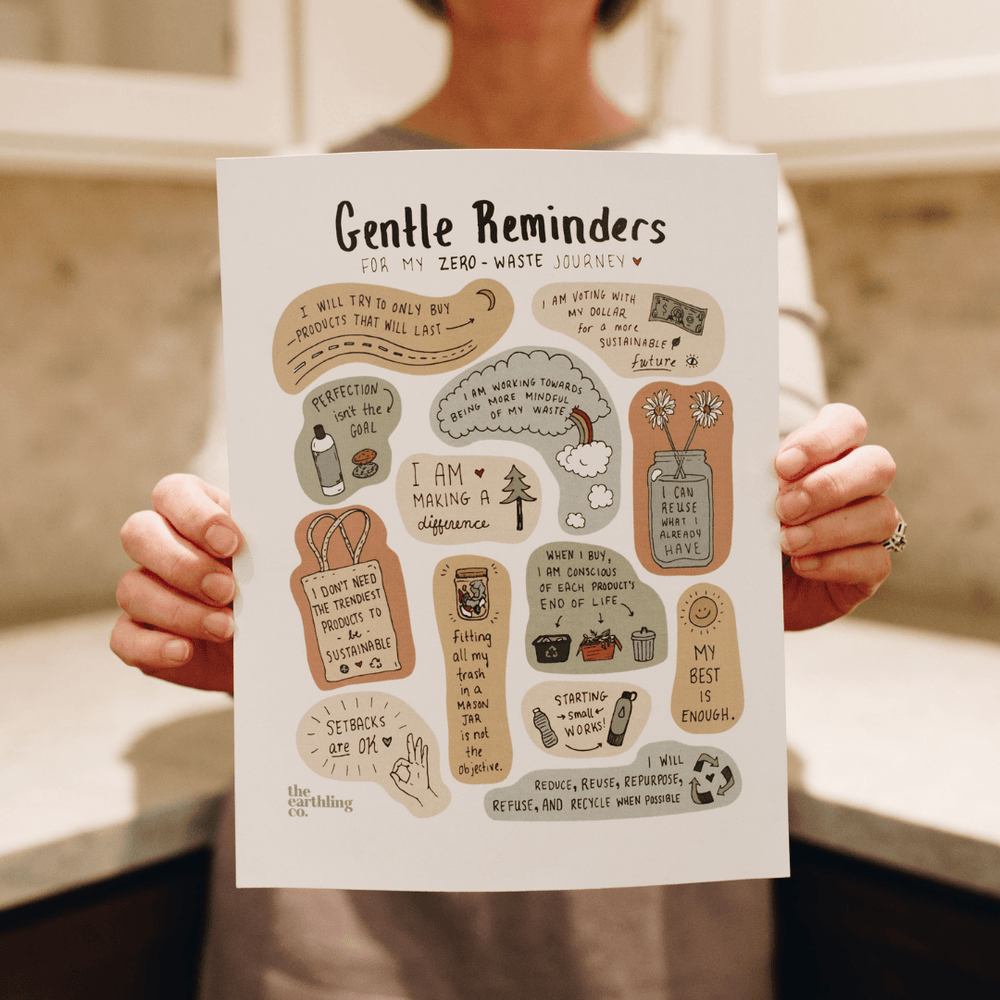 Gentle Reminders
FOR MY ZERO-WASTE JOURNEY
I WILL TRY TO ONLY BUY
PRODUCTS THAT WILL LAST
I AM VOTING WITH
MY DOLLAR
for a more
SUSTAINABLE
future
PERFECTION
isn't the
GOAL
I AM WORKING TOWARDS
BEING MORE MINDFUL
OF MY WASTE
I AM
MAKING A
difference
I CAN
REUSE
WHAT I
ALREADY
HAVE
I DON'T NEED
THE TRENDIEST
PRODUCTS TO
be
SUSTAINABLE
Fitting
all my
trash
in a
MASON
JAR
is not
the
Objective.
WHEN I BUY,
I AM CONSCIOUS
OF EACH PRODUCT'S
END OF LIFE
MY
BEST
IS
ENOUGH.
STARTING
small
WORKS!
SETBACKS
are OK
I WILL
REDUCE, REUSE, REPURPOSE,
REFUSE, AND RECYCLE WHEN POSSIBLE
the
earthling
co.